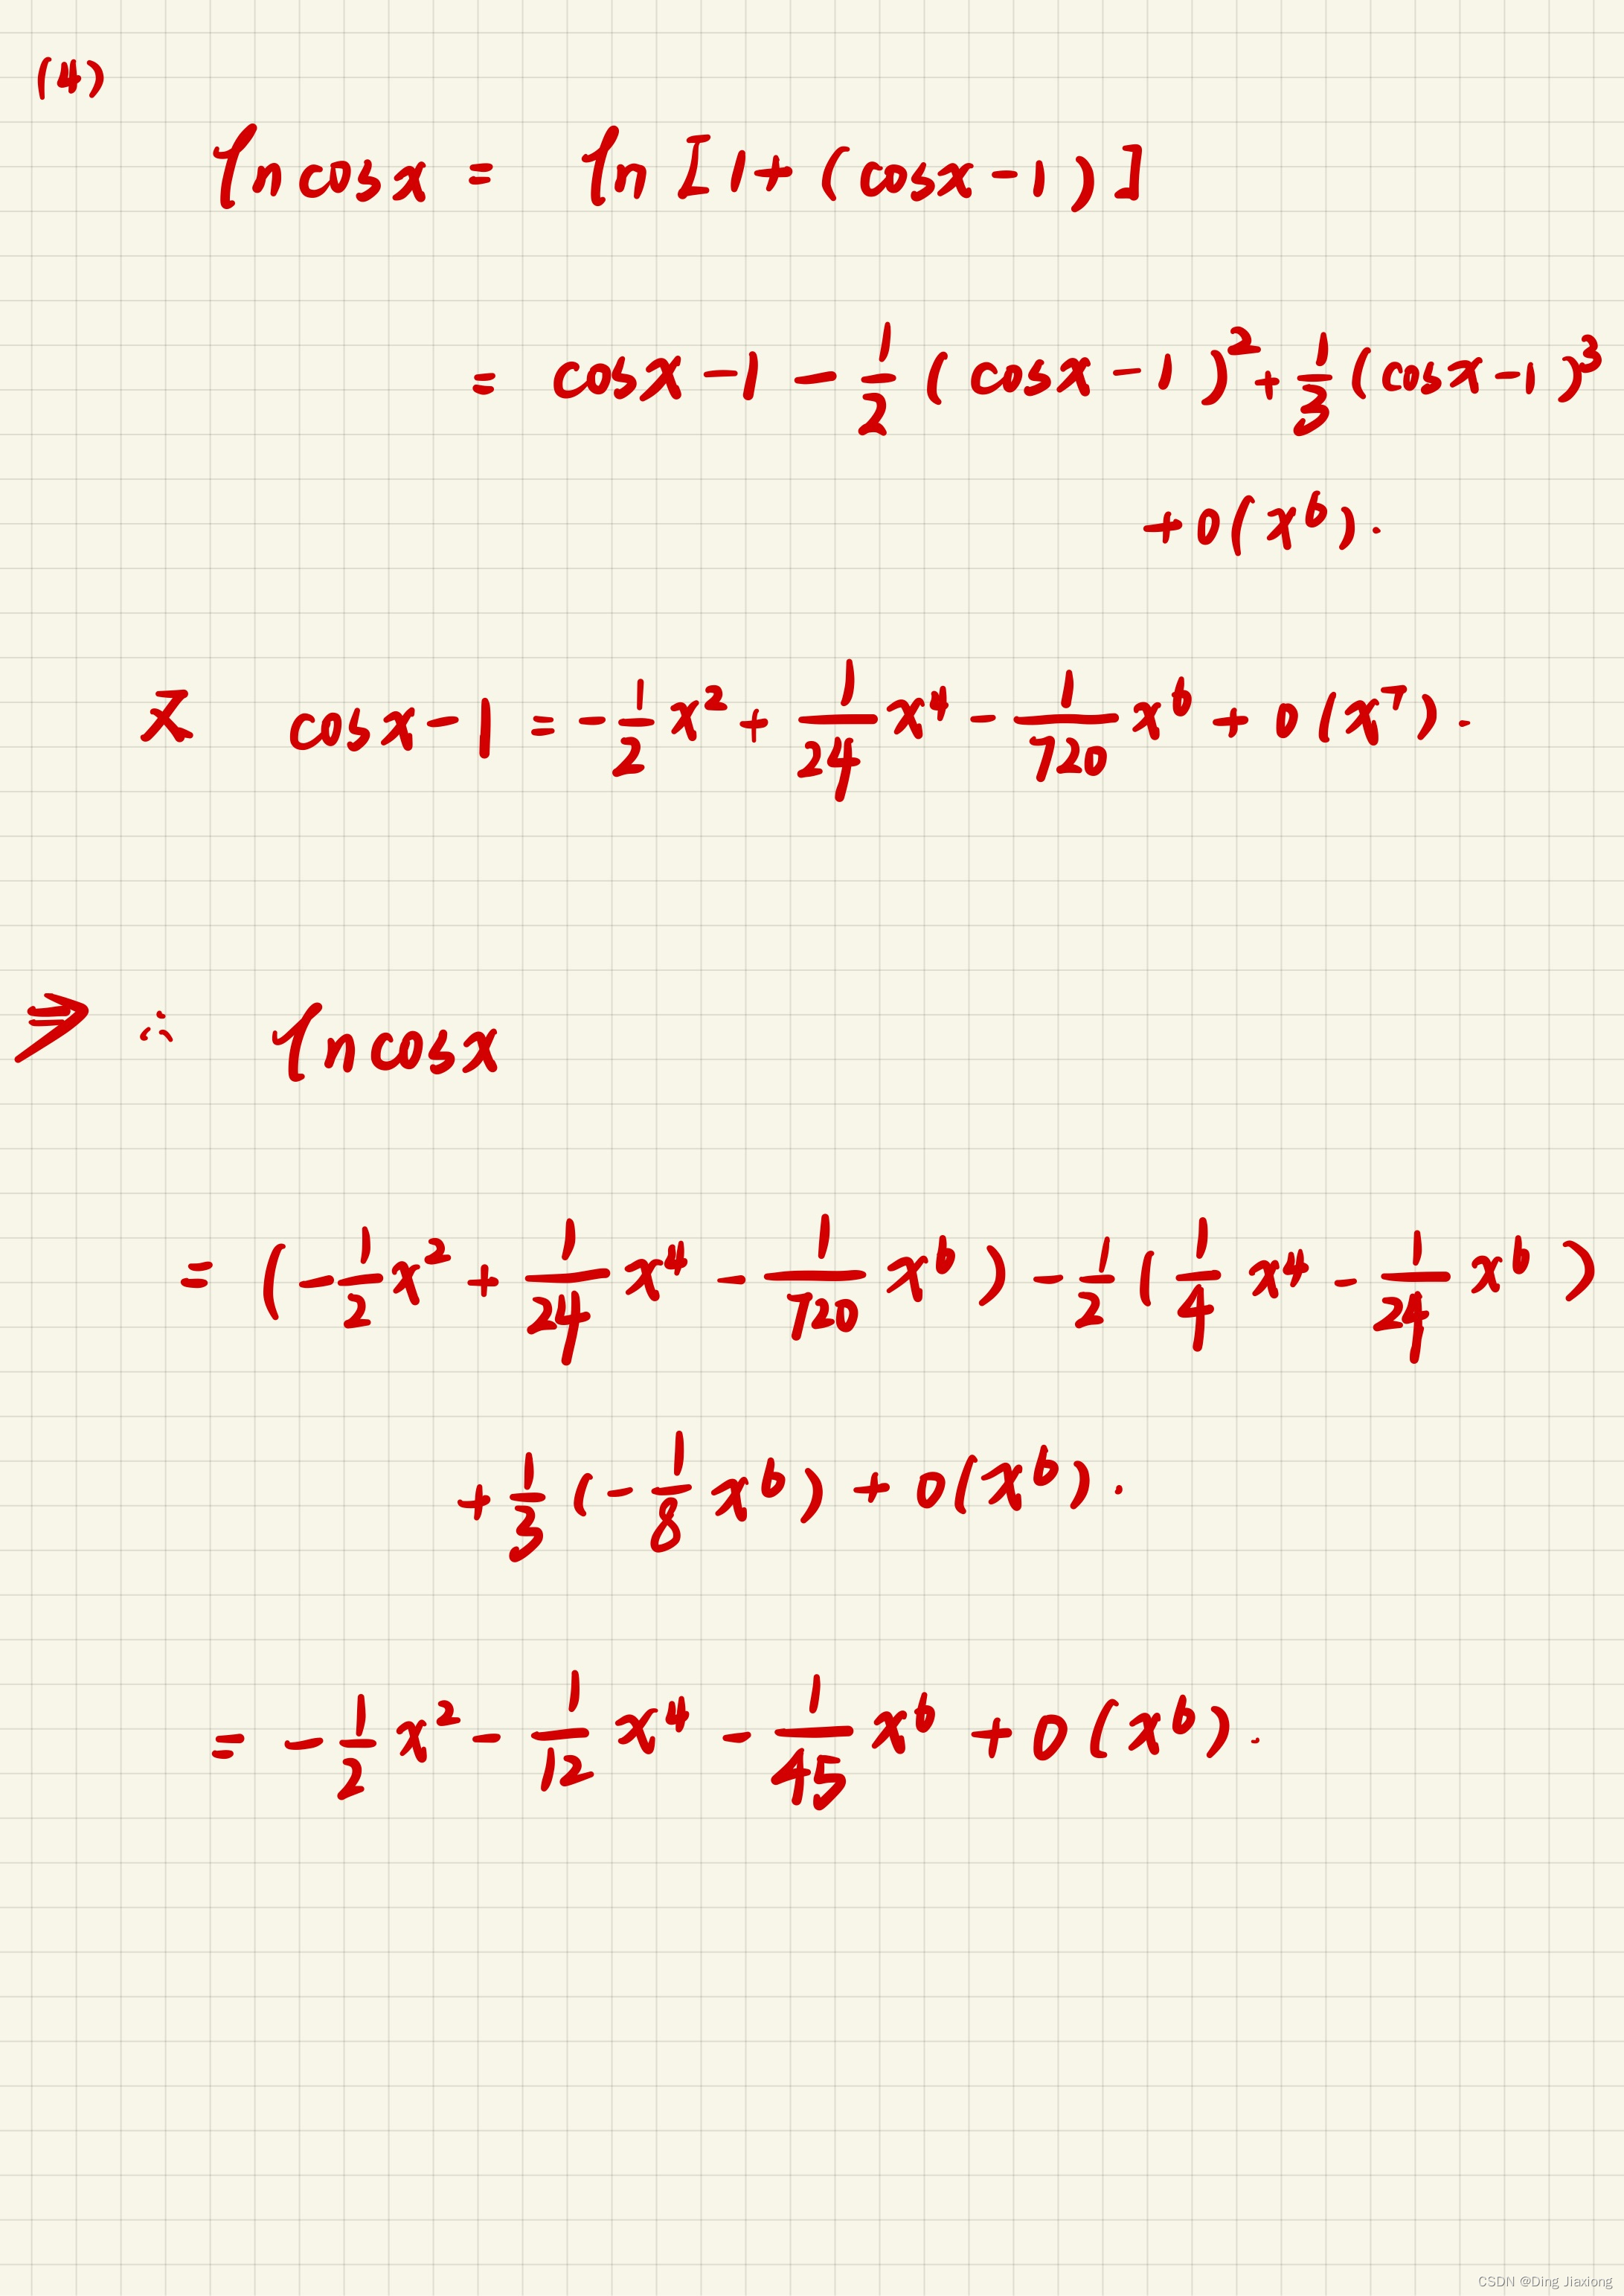 (4)
ln cosx = ln [1+ (cosx-1)]
= cosx-1 - \frac{1}{2}(cosx-1)^2 + \frac{1}{3}(cosx-1)^3
+ o(x^6).
又 cosx-1 = -\frac{1}{2}x^2 + \frac{1}{24}x^4 - \frac{1}{720}x^6 + o(x^7).
⇒ ∴ ln cosx
= (-\frac{1}{2}x^2 + \frac{1}{24}x^4 - \frac{1}{720}x^6) - \frac{1}{2}(\frac{1}{4}x^4 - \frac{1}{24}x^6)
+ \frac{1}{3}(-\frac{1}{8}x^6) + o(x^6).
= -\frac{1}{2}x^2 - \frac{1}{12}x^4 - \frac{1}{45}x^6 + o(x^6).
CSDN @Ding Jiaxiong